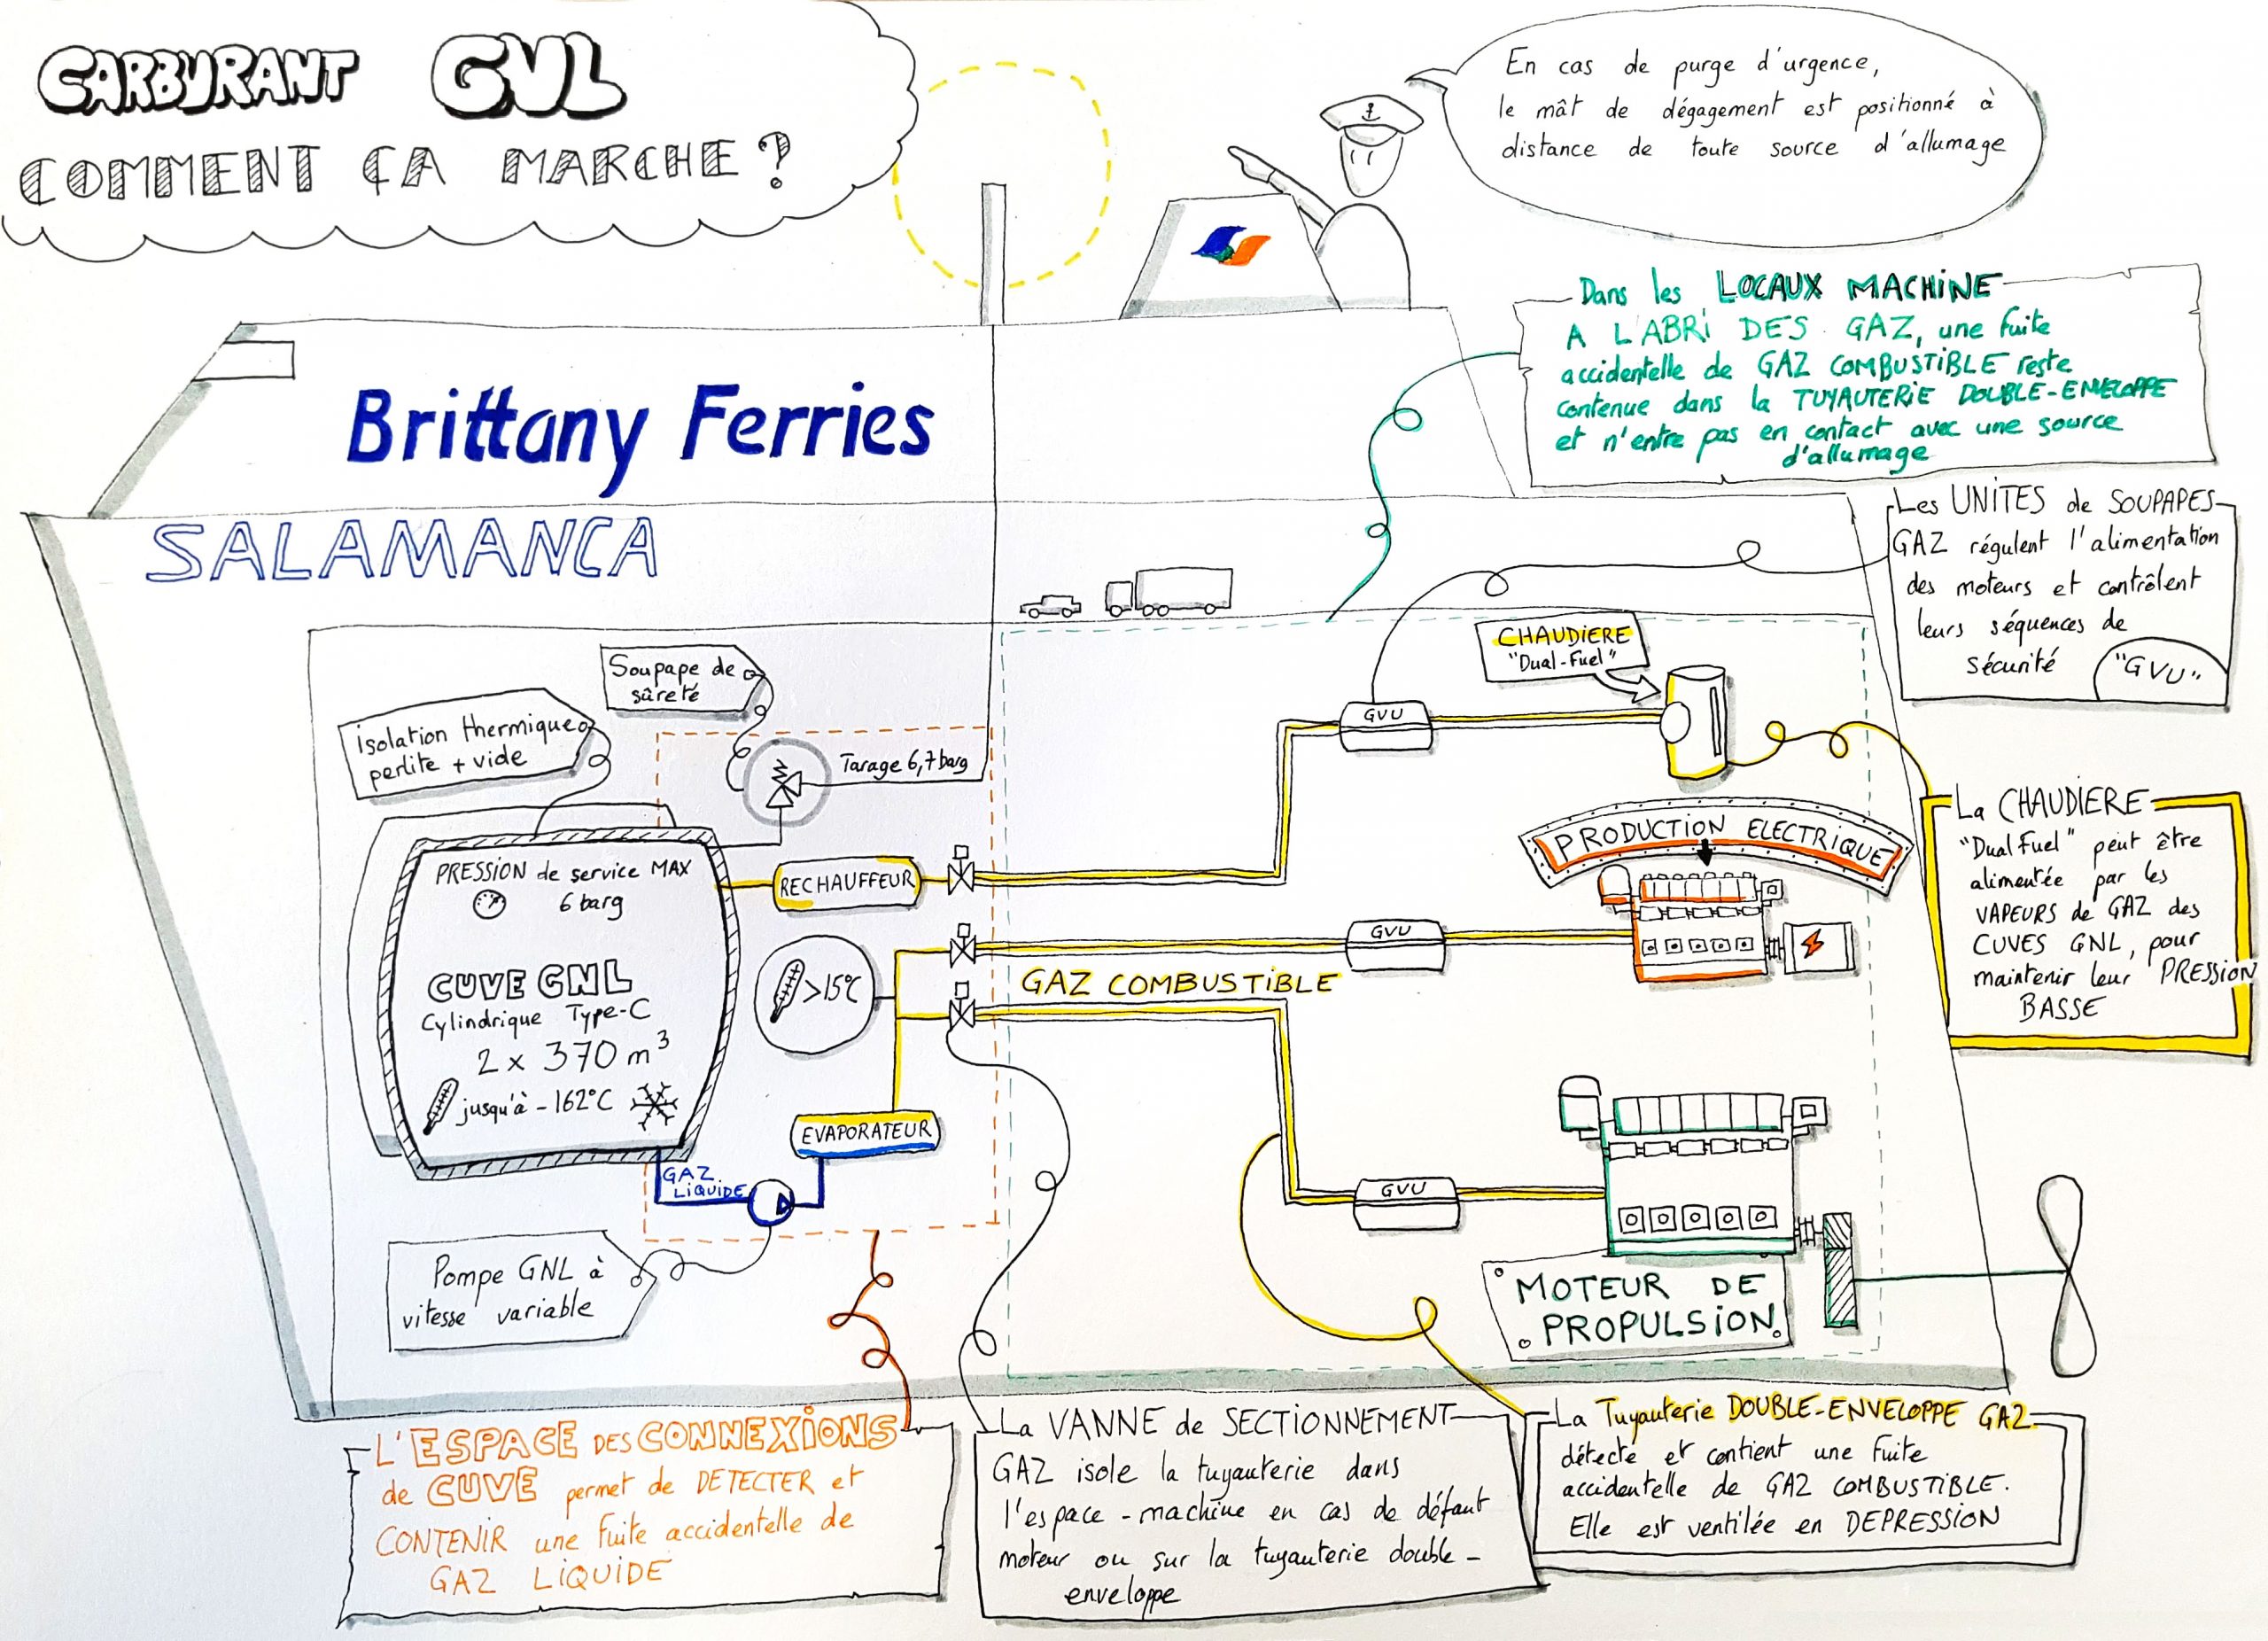 CARBURANT GNL
COMMENT ÇA MARCHE ?
En cas de purge d'urgence,
le mât de dégagement est positionné à
distance de toute source d'allumage
Dans les LOCAUX MACHINE
A L'ABRI DES GAZ, une fuite
accidentelle de GAZ COMBUSTIBLE reste
contenue dans la TUYAUTERIE DOUBLE-ENVELOPPE
et n'entre pas en contact avec une source
d'allumage
Brittany Ferries
SALAMANCA
Les UNITES de SOUPAPES
GAZ régulent l'alimentation
des moteurs et contrôlent
leurs séquences de
sécurité
"GVU"
CHAUDIERE
"Dual-Fuel"
Soupape de
sûreté
isolation thermique
perlite + vide
Tarage 6,7 barg
GVU
La CHAUDIERE
"Dual Fuel" peut être
alimentée par les
VAPEURS de GAZ des
CUVES GNL, pour
maintenir leur PRESSION
BASSE
PRODUCTION ELECTRIQUE
PRESSION de service MAX
6 barg
RECHAUFFEUR
GVU
CUVE GNL
Cylindrique Type-C
2 x 370 m³
jusqu'à -162°C
>15°C
GAZ COMBUSTIBLE
EVAPORATEUR
GAZ
LIQUIDE
GVU
Pompe GNL à
vitesse variable
MOTEUR DE
PROPULSION
L'ESPACE DES CONNEXIONS
de CUVE permet de DETECTER et
CONTENIR une fuite accidentelle de
GAZ LIQUIDE
La VANNE de SECTIONNEMENT
GAZ isole la tuyauterie dans
l'espace-machine en cas de défaut
moteur ou sur la tuyauterie double-
enveloppe
La Tuyauterie DOUBLE-ENVELOPPE GAZ
détecte et contient une fuite
accidentelle de GAZ COMBUSTIBLE.
Elle est ventilée en DEPRESSION